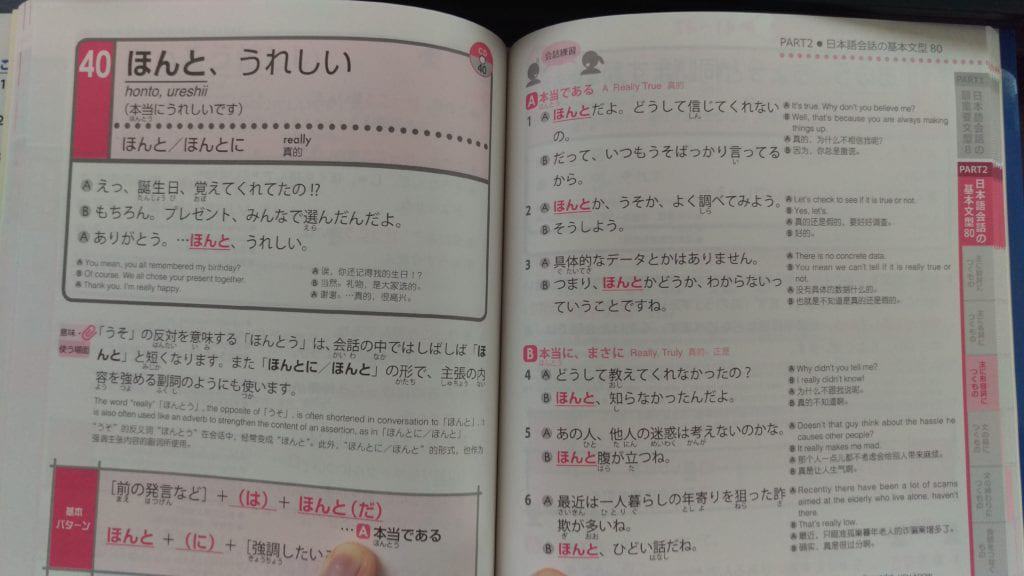 40
ほんと、うれしい
CD
40
honto, ureshii
（本当にうれしいです）
ほんとう
ほんと／ほんとに
really
真的
Ⓐ えっ、誕生日、覚えてくれてたの！？
たんじょう び おぼ
Ⓑ もちろん。プレゼント、みんなで選んだんだよ。
えら
Ⓐ ありがとう。…ほんと、うれしい。
Ⓐ You mean, you all remembered my birthday?
Ⓑ Of course. We all chose your present together.
Ⓐ Thank you. I'm really happy.
Ⓐ 诶，你还记得我的生日！？
Ⓑ 当然。礼物，是大家选的。
Ⓐ 谢谢。…真的，很高兴。
意味・
使う場面
「うそ」の反対を意味する「ほんとう」は、会話の中ではしばしば「ほ
はんたい い み かい わ なか
んと」と短くなります。また「ほんとに／ほんと」の形で、主張の内
みじか かたち しゅちょう ない
容を強める副詞のようにも使います。
よう つよ ふく し つか
The word "really"「ほんとう」, the opposite of「うそ」, is often shortened in conversation to「ほんと」.
is also often used like an adverb to strengthen the content of an assertion, as in「ほんとに／ほんと」
"うそ" 的反义词 "ほんとう" 在会话中，经常变成 "ほんと"。此外，"ほんとに／ほんと" 的形式，也作为
强调主张内容的副词所使用。
基本
パターン
［前の発言など］＋（は）＋ほんと（だ）
まえ はつげん
…Ⓐ 本当である
ほんとう
ほんと＋（に）＋［強調したい
きょうちょう
PART2 ● 日本語会話の基本文型 80
会話練習
A 本当である A Really True 真的
ほんとう
1 Ⓐ ほんとだよ。どうして信じてくれない
しん
の。
Ⓑ だって、いつもうそばっかり言ってる
い
から。
Ⓐ It's true. Why don't you believe me?
Ⓑ Well, that's because you are always making
things up.
Ⓐ 真的，为什么不相信我呢？
Ⓑ 因为，你总是撒谎。
2 Ⓐ ほんとか、うそか、よく調べてみよう。
しら
Ⓑ そうしよう。
Ⓐ Let's check to see if it is true or not.
Ⓑ Yes, let's.
Ⓐ 真的还是假的，要好好调查。
Ⓑ 好的。
3 Ⓐ 具体的なデータとかはありません。
ぐ たいてき
Ⓑ つまり、ほんとかどうか、わからないっ
ていうことですね。
Ⓐ There is no concrete data.
Ⓑ You mean we can't tell if it is really true or
not.
Ⓐ 没有具体的数据什么的。
Ⓑ 也就是不知道是真的还是假的。
B 本当に、まさに Really, Truly 真的，正是
ほんとう
4 Ⓐ どうして教えてくれなかったの？
おし
Ⓑ ほんと、知らなかったんだよ。
し
Ⓐ Why didn't you tell me?
Ⓑ I really didn't know!
Ⓐ 为什么不跟我说呢。
Ⓑ 真的不知道啊。
5 Ⓐ あの人、他人の迷惑は考えないのかな。
ひと た にん めいわく かんが
Ⓑ ほんと腹が立つね。
はら た
Ⓐ Doesn't that guy think about the hassle he
causes other people?
Ⓑ It really makes me mad.
Ⓐ 那个人一点儿都不考虑会给别人带来麻烦。
Ⓑ 真是让人生气啊。
6 Ⓐ 最近は一人暮らしの年寄りを狙った詐
さいきん ひとり ぐ としよ ねら さ
欺が多いね。
ぎ おお
Ⓑ ほんと、ひどい話だね。
はなし
Ⓐ Recently there have been a lot of scams
aimed at the elderly who live alone, haven't
there.
Ⓑ That's really low.
Ⓐ 最近，只瞄准孤巢暮年老人的诈骗案增多了。
Ⓑ 确实，真是很过分啊。
PART1
PART2
日本語会話の
基本文型 80
主に形容詞に
つくもの